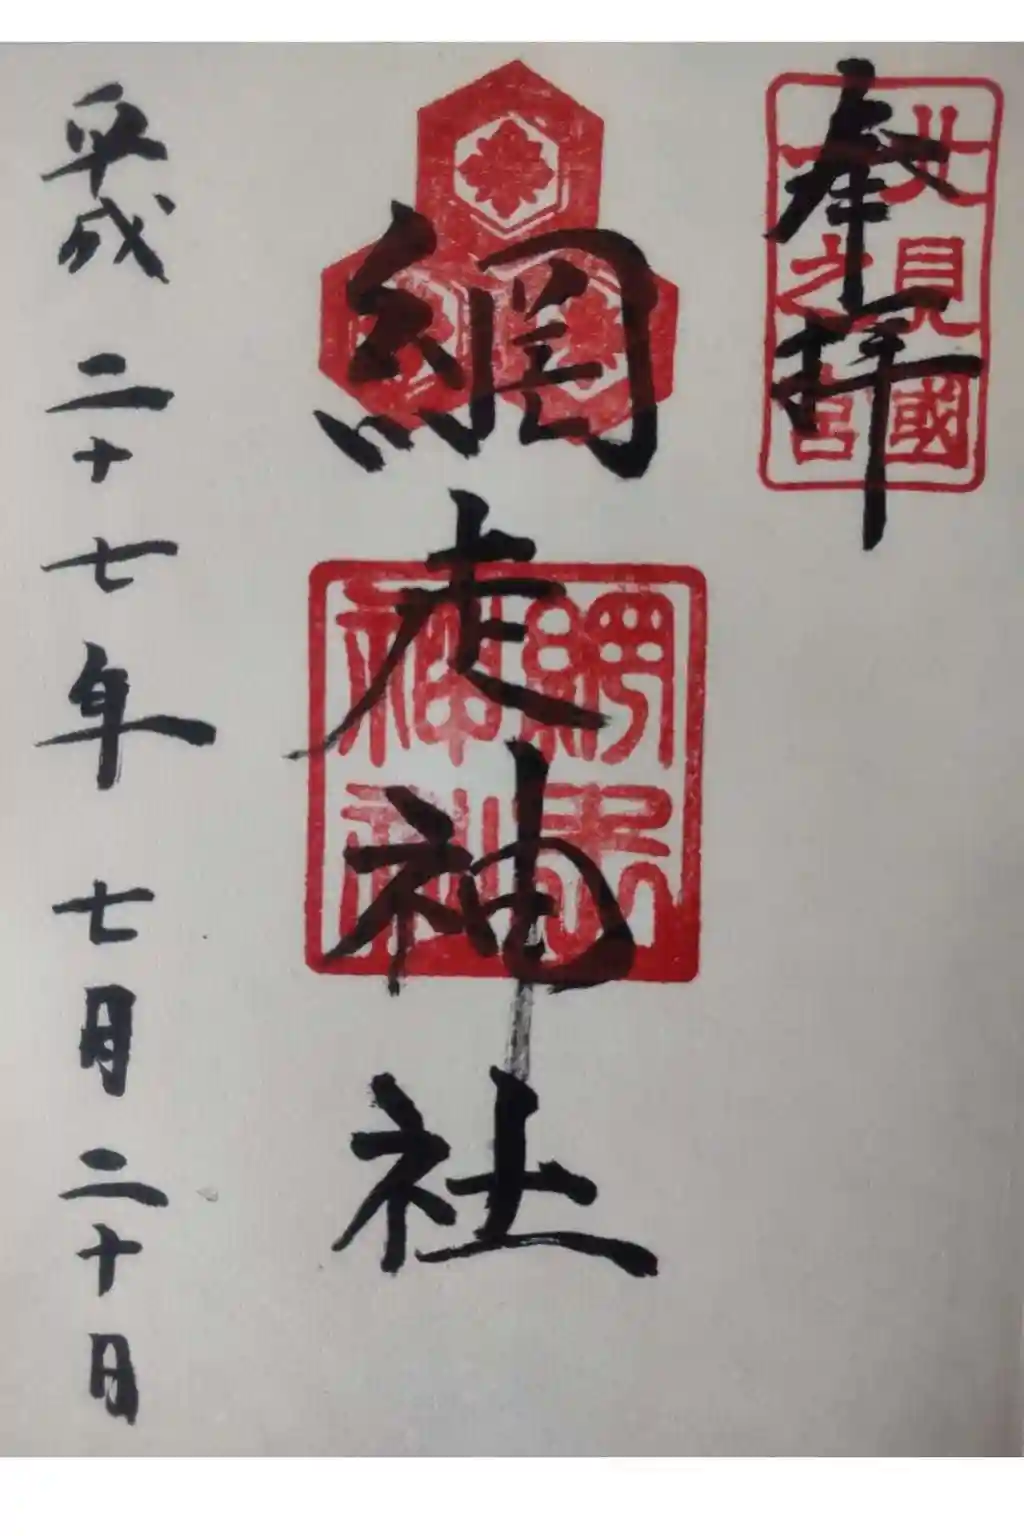 奉拝
北見國
一之宮
網走神社
網走
神社
平成二十七年七月二十日